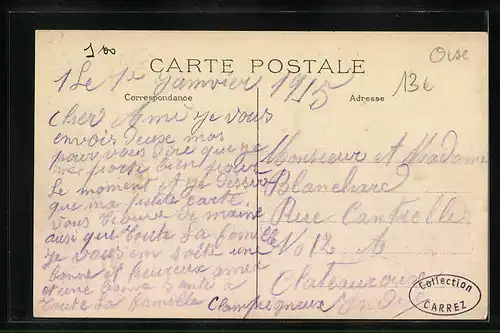 1 00
Oise
CARTE POSTALE
13€
Le 1er Janvier 1915
Correspondance
Adresse
Cher Ami je vous
envois deux mos
pour vous dire que je
me porte bien pour
le moment et je dessir
que ma petite carte
vous trouve de maime
ausi que toute la famille
je vous em soite une
bonne et heureux anner
et une bonne santé a
toute la famille
Monsieur et Madame
Blanchard
Rue Cantrelle
No 12 A
Chateauroux
Indre
Collection
CARREZ